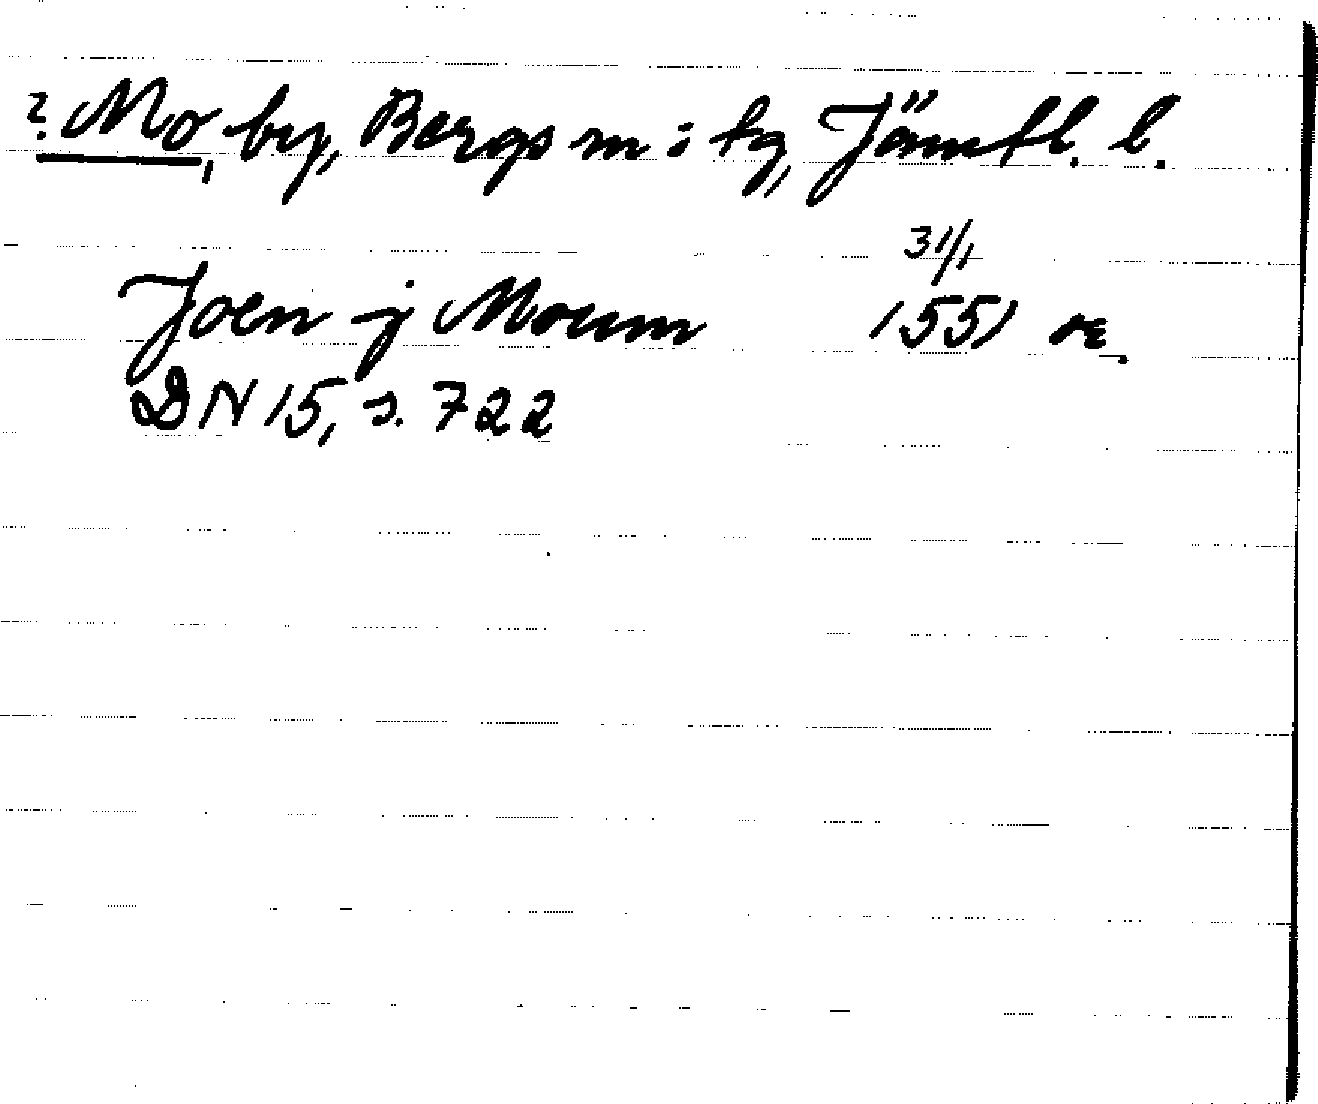 ? Mo, by, Bergs sn i tg, Jämtl. l.
31/1
Joen j Moum 1551 or.
DN 15, s. 722